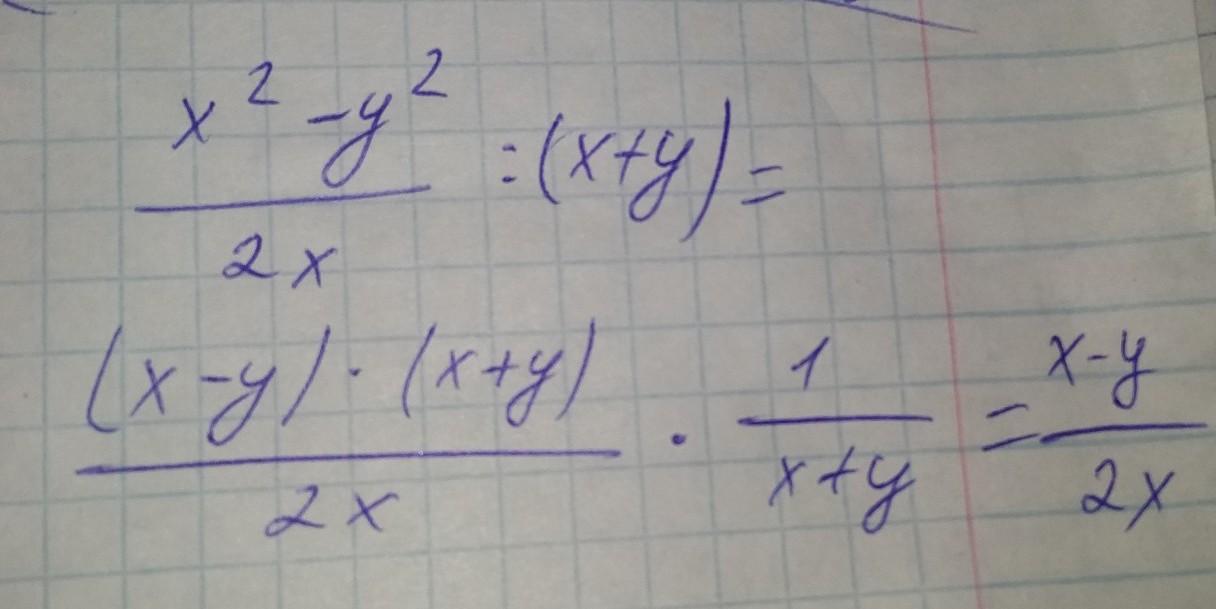 \frac{x^2 - y^2}{2x} : (x+y) =
\frac{(x-y) \cdot (x+y)}{2x} \cdot \frac{1}{x+y} = \frac{x-y}{2x}